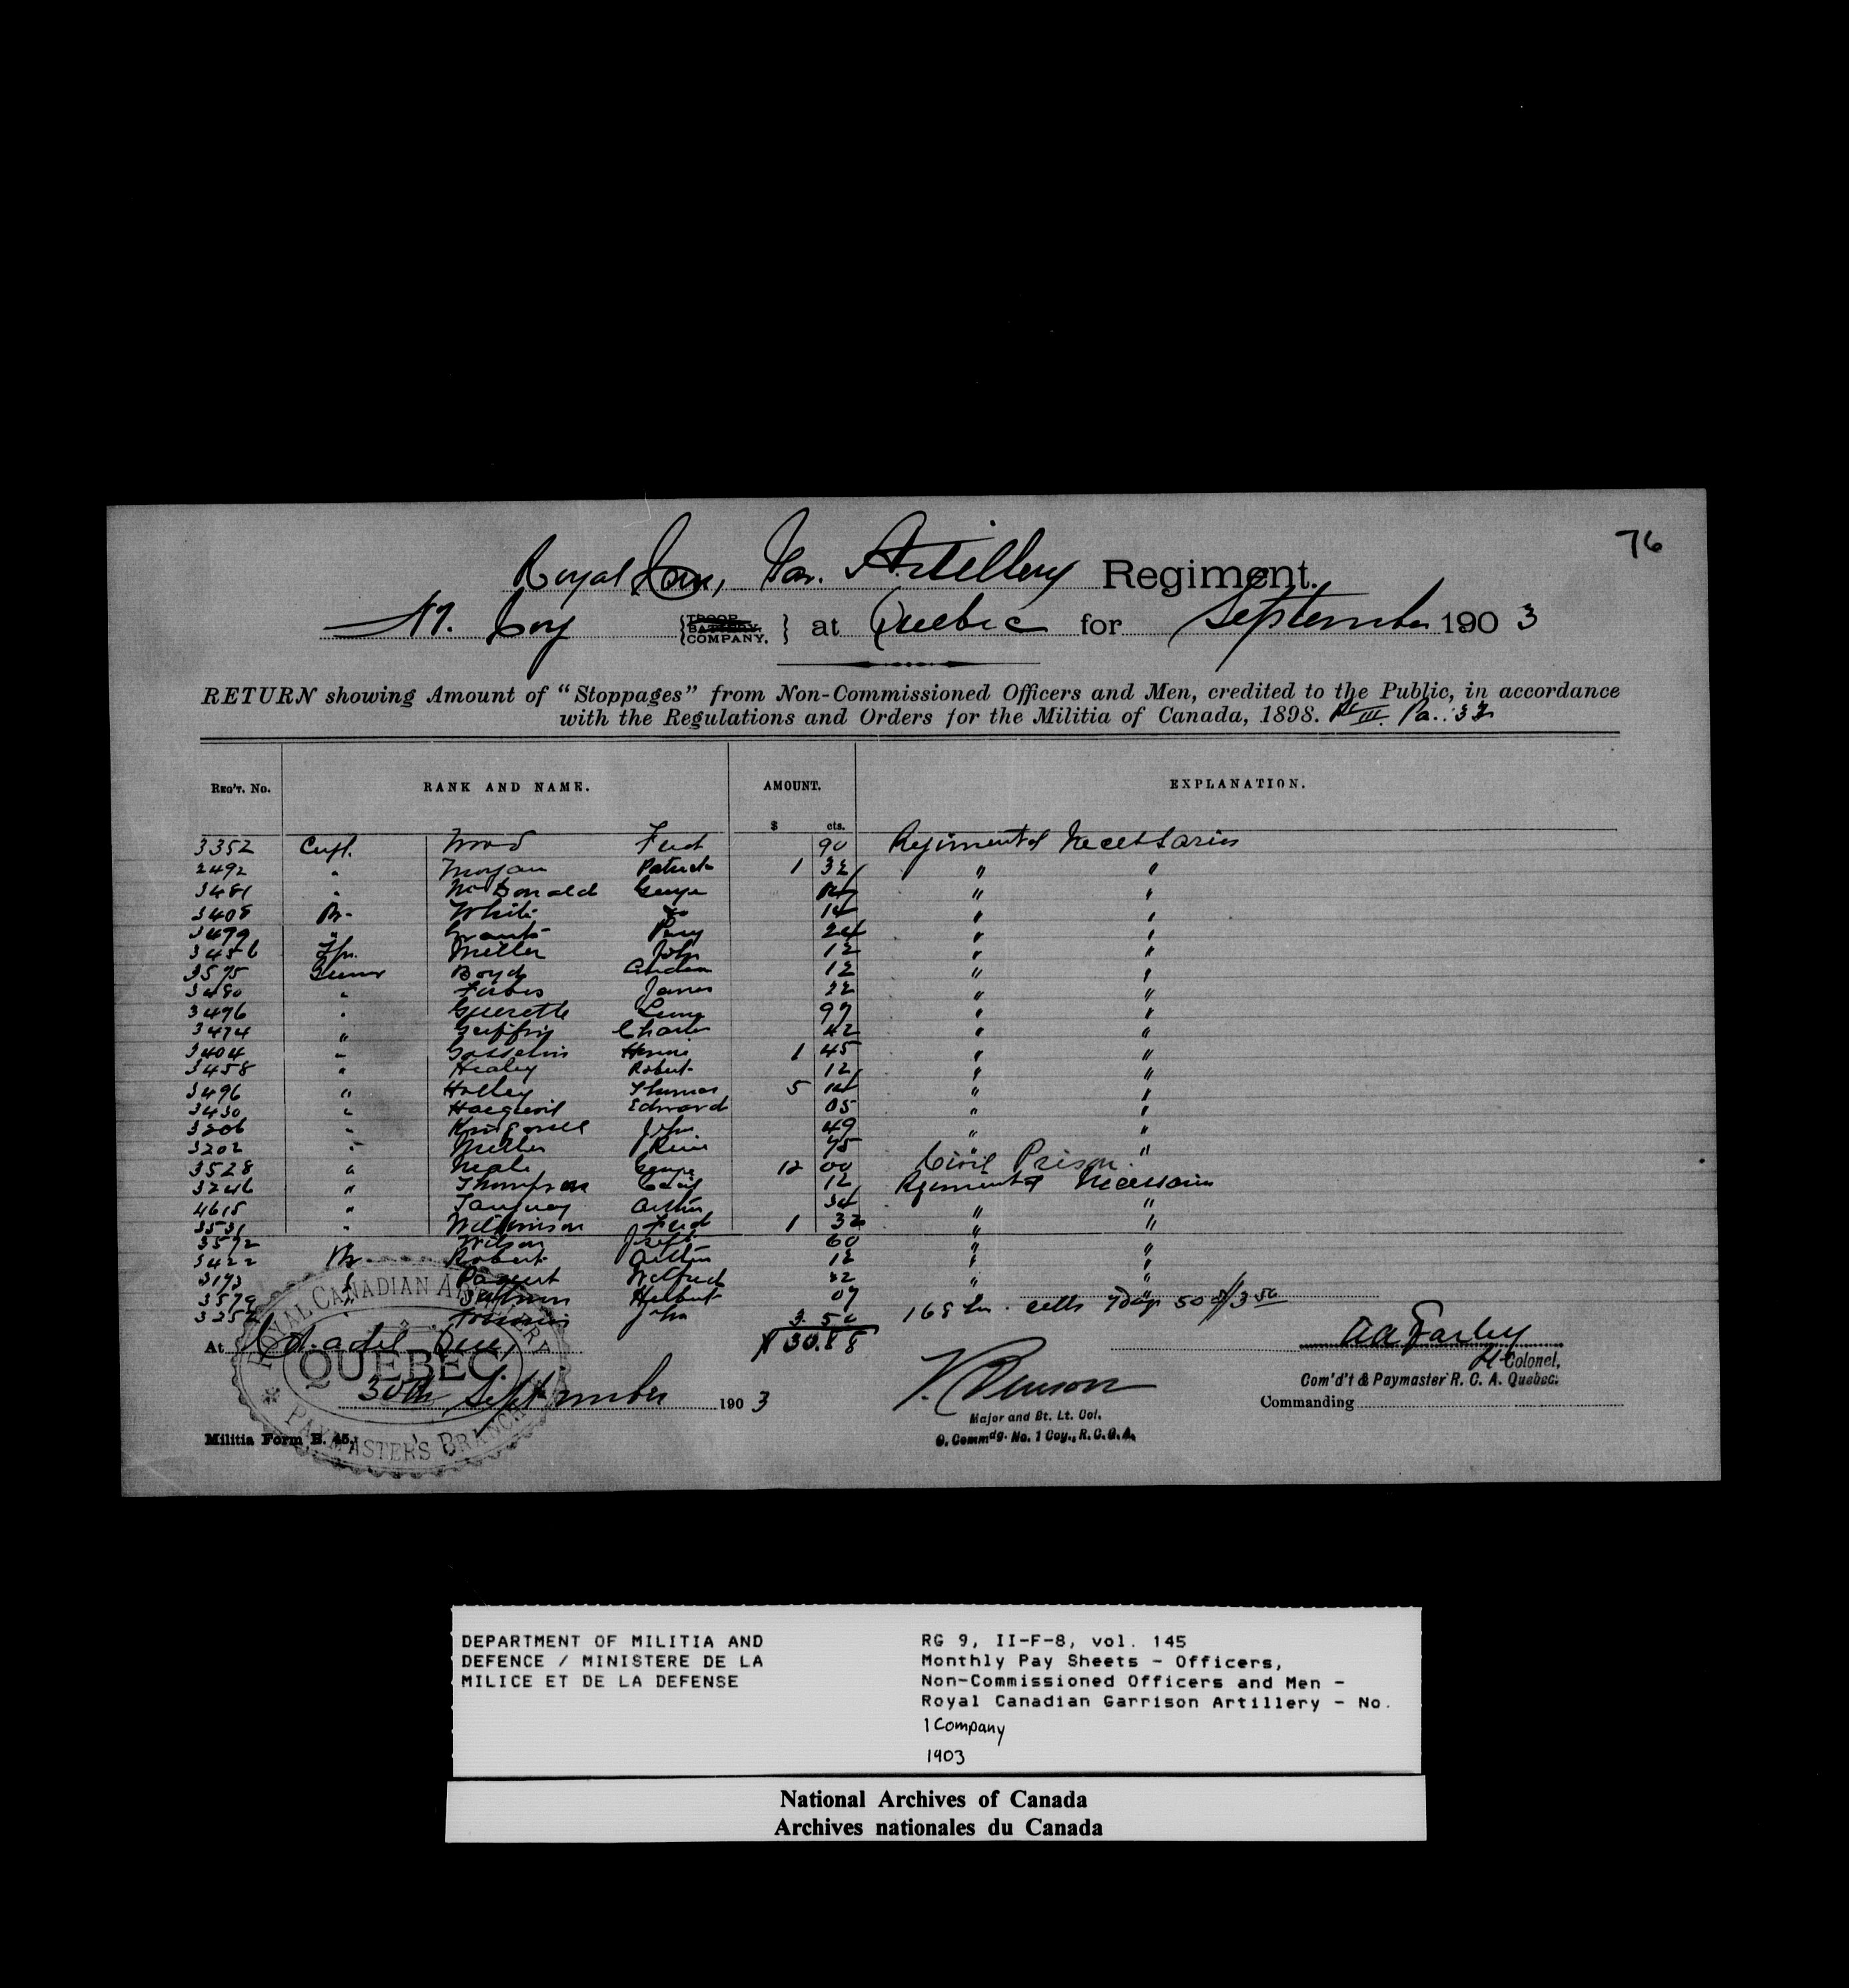 76
Royal Can, Gar. Artillery Regiment.
No. 1 Coy {TROOP. BATTERY. COMPANY.} at Quebec for September 1903
RETURN showing Amount of "Stoppages" from Non-Commissioned Officers and Men, credited to the Public, in accordance
with the Regulations and Orders for the Militia of Canada, 1898. Pt III. Pa.
REG'T. No. RANK AND NAME. AMOUNT. EXPLANATION.
$ cts.
3352 Corpl. Wood Fred 90 Regimental Necessaries
2492 " Morgan Patrick 1 32 " "
3481 " McDonald George " "
3408 Br. White 14 " "
3479 " Grant Percy 24 " "
3456 Miller John 12 " "
3575 Gunner Boyd Andrew 12 " "
3480 " Forbes James 22 " "
3476 " Guerette 97 " "
3474 " Griffin Charles 42 " "
3404 " Gosselin Henri 1 45 " "
3458 " Healey Robert 12 " "
3496 " Holley Thomas 5 14 " "
3430 " Edward 05 " "
3206 " John 49 " "
3202 " Miller 75 " "
3528 " Neale George 12 00 Civil Prison.
3246 " Thompson Cecil 12 Regimental Necessaries
4615 " Tanguay Arthur 34 " "
3531 " Wilkinson Fred 1 32 " "
3572 " Wilson Joseph 60 " "
3422 Robert Arthur 12 " "
3193 " Paquet Wilfred 22 " "
3579 " Herbert 07 "
325 John 3.50 168 hrs. cells 7 days 50 $3.50
$30.88
At Citadel Que,
30th September 1903
ROYAL CANADIAN ARTILLERY
QUEBEC.
PAYMASTER'S BRANCH
Militia Form B. 45.
Major and Bt. Lt. Col.
O. Commdg. No. 1 Coy., R.C.G.A.
A A Farley
Lt Colonel,
Com'd't & Paymaster R. C. A. Quebec.
Commanding
DEPARTMENT OF MILITIA AND
DEFENCE / MINISTERE DE LA
MILICE ET DE LA DEFENSE
RG 9, II-F-8, vol. 145
Monthly Pay Sheets - Officers,
Non-Commissioned Officers and Men -
Royal Canadian Garrison Artillery - No.
1 Company
1903
National Archives of Canada
Archives nationales du Canada